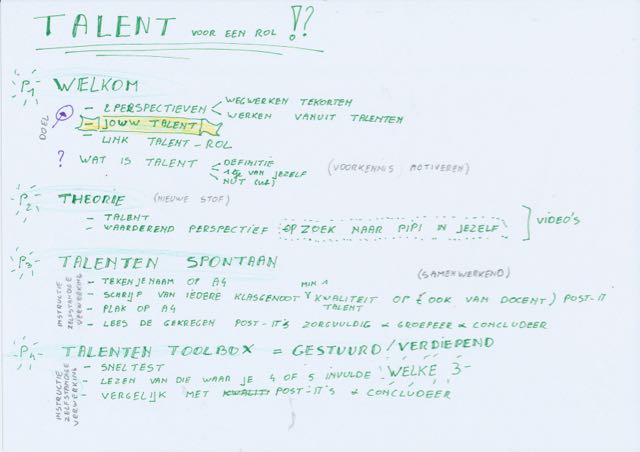 TALENT VOOR EEN ROL !?
P1 WELKOM
DOEL
- 2 PERSPECTIEVEN < WEGWERKEN TEKORTEN
WERKEN VANUIT TALENTEN
- JOUW TALENT
- LINK TALENT - ROL
? WAT IS TALENT < DEFINITIE (VOORKENNIS MOTIVEREN)
VAN JEZELF
NUT
P2 THEORIE (NIEUWE STOF)
- TALENT
- WAARDEREND PERSPECTIEF OP ZOEK NAAR PIPI IN JEZELF
VIDEO'S
P3 TALENTEN SPONTAAN (SAMENWERKEND)
INSTRUCTIE ZELFSTANDIGE VERWERKING
- TEKEN JE NAAM OP A4
- SCHRIJF VAN IEDERE KLASGENOOT MIN 1 KWALITEIT OP (OOK VAN DOCENT) POST-IT
TALENT
- PLAK OP A4
- LEES DE GEKREGEN POST-IT'S ZORGVULDIG & GROEPEER & CONCLUDEER
P4 TALENTEN TOOLBOX = GESTUURD/VERDIEPEND
INSTRUCTIE ZELFSTANDIGE VERWERKING
- SNELTEST
- LEZEN VAN DIE WAAR JE 4 OF 5 INVULDE WELKE 3
- VERGELIJK MET POST-IT'S & CONCLUDEER